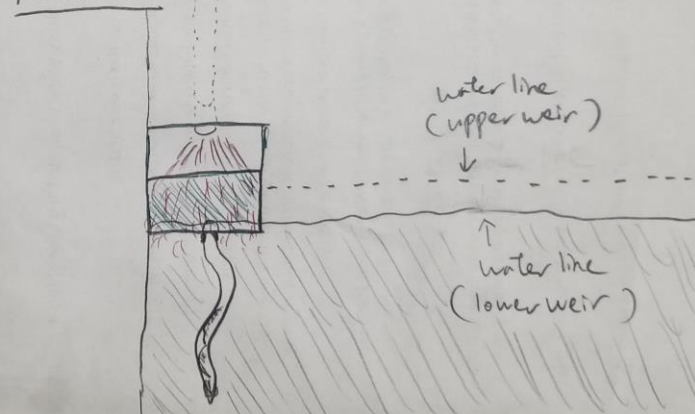 water line
(upper weir)
water line
(lower weir)